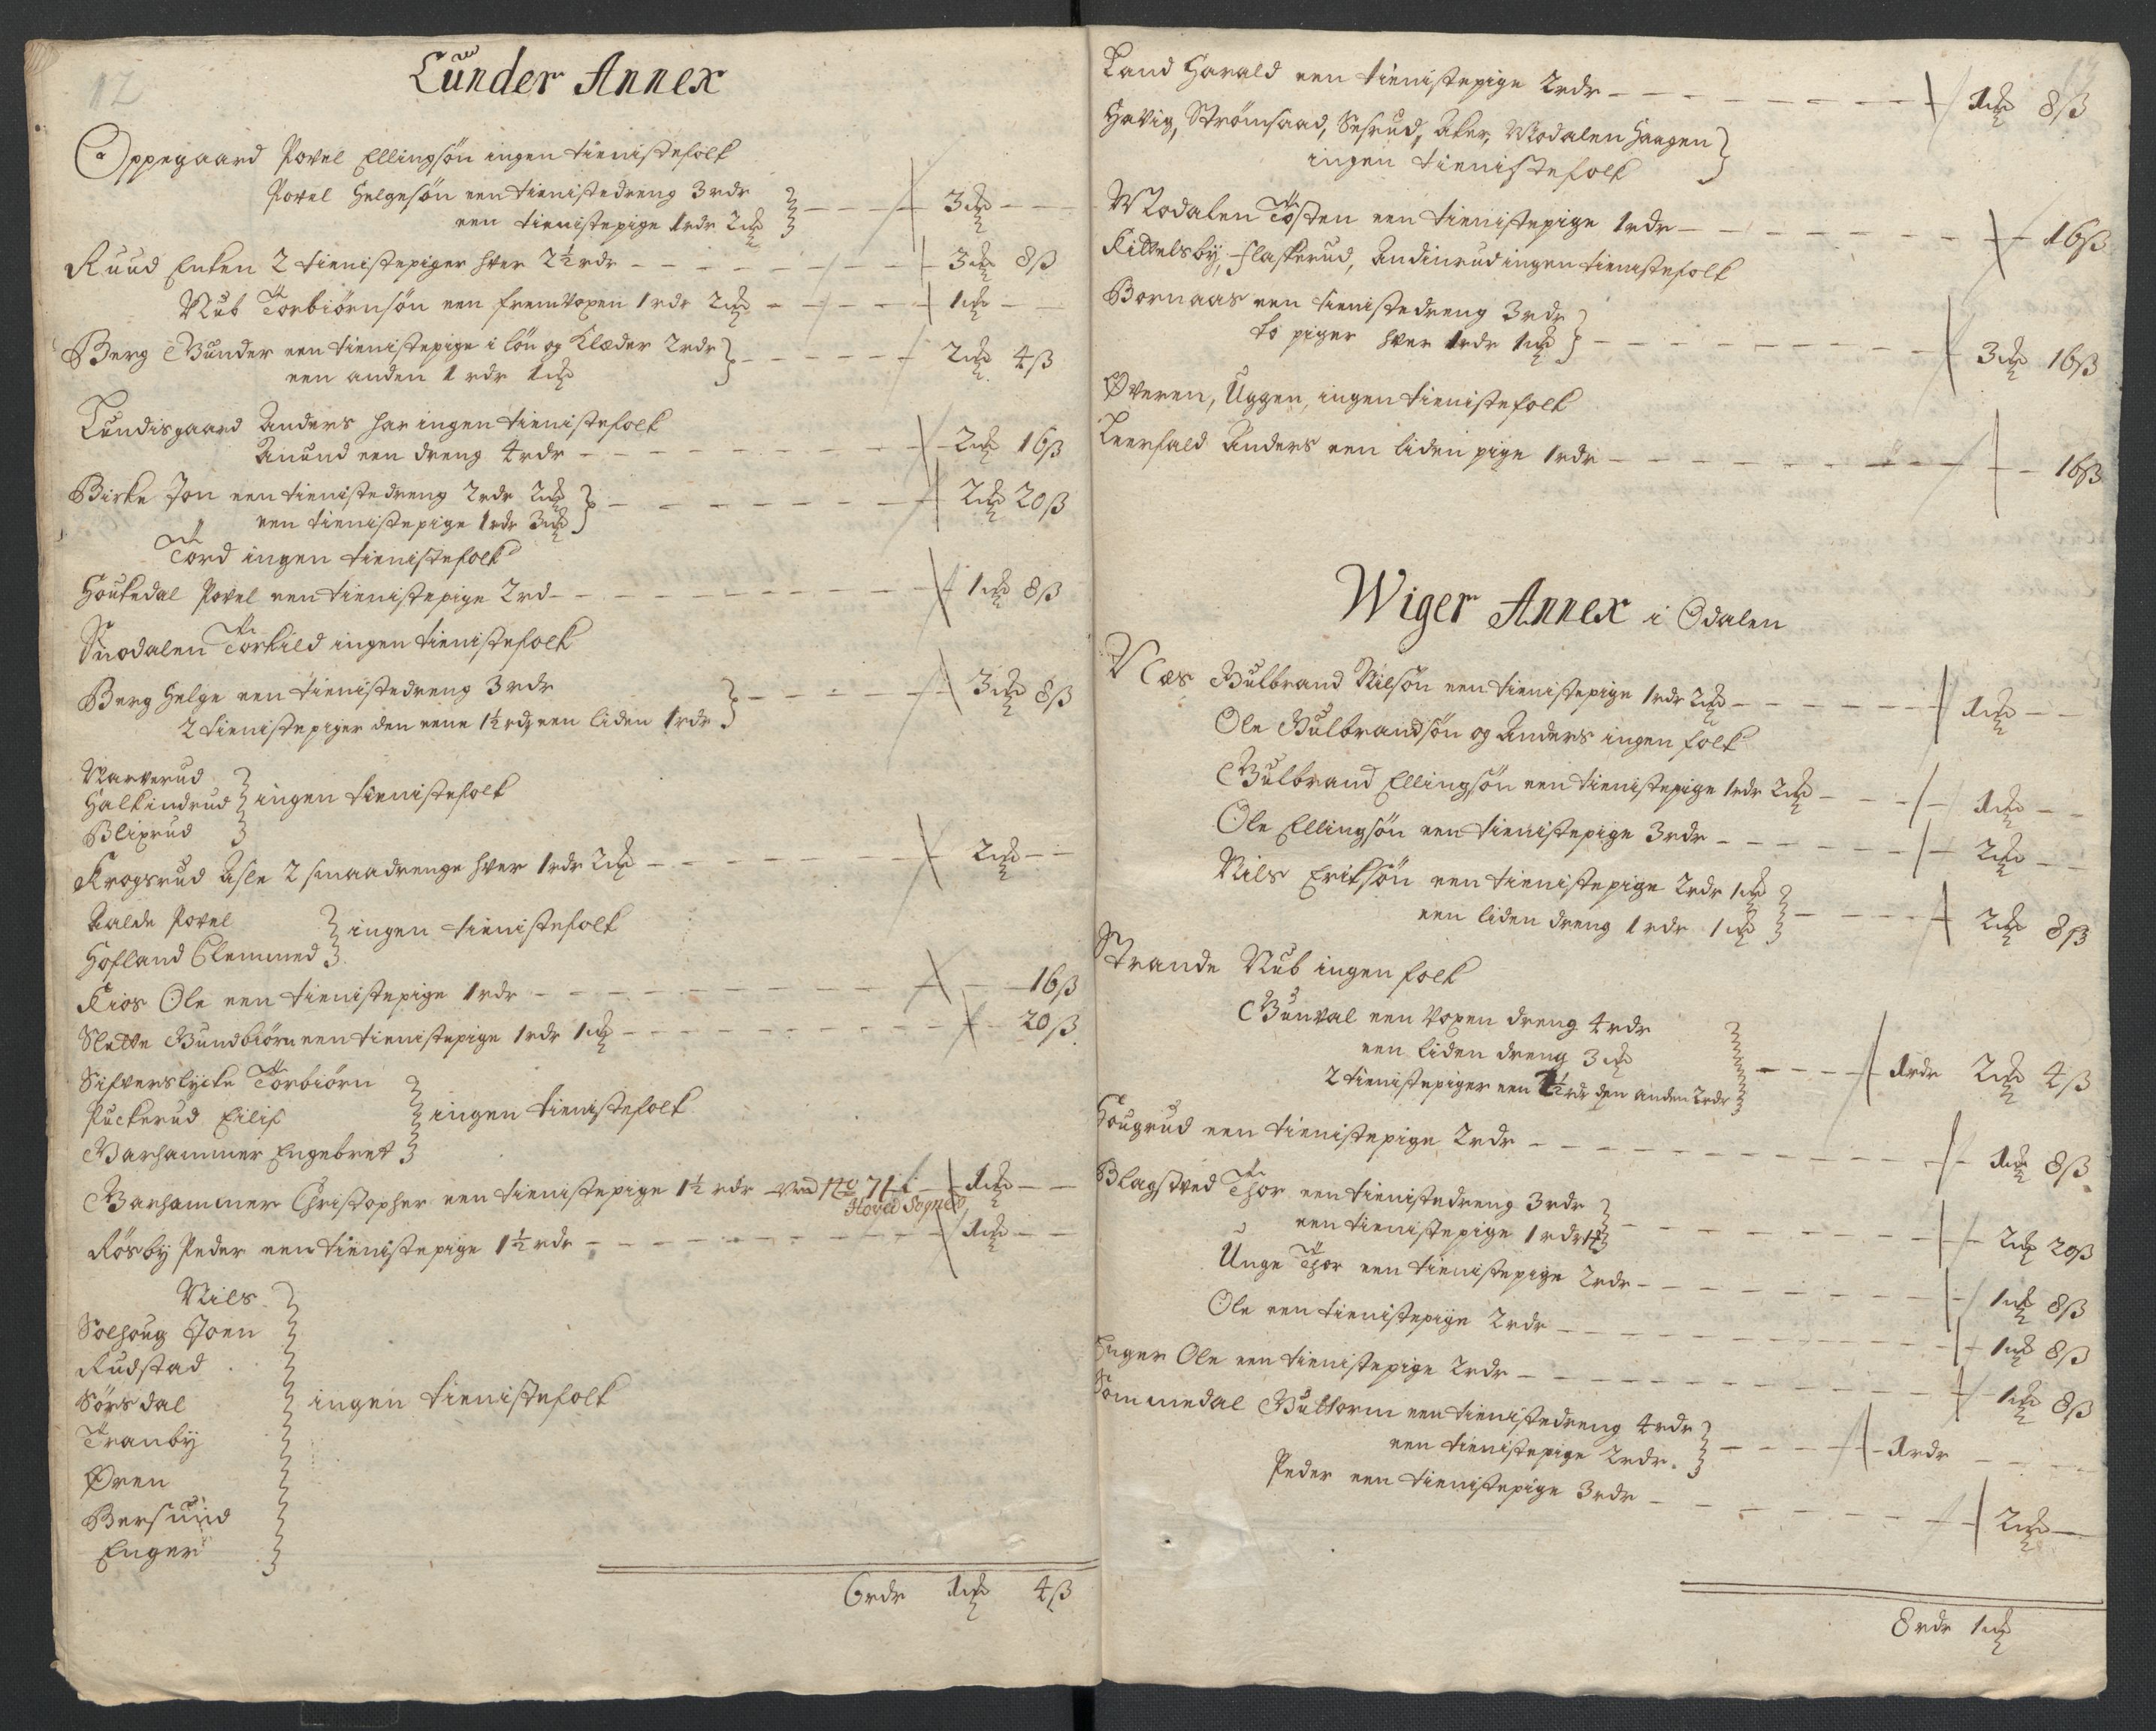 12
Lunder Annex
Oppegaard Povel Ellingsøn ingen tienistefolk
Povel Helgesøn een tienistedreng 3 rdr
een tienistepige 1 rdr 2 mk — 3 mk —
Ruud Enken 2 tienistepiger hver 2½ rdr — 3 mk 8 ß
Nub Torbiørnsøn een fremvoxen 1 rdr 2 mk — 1 mk —
Berg Gunder een tienistepige i løn og Klæder 2 rdr
een anden 1 rdr 1 mk — 2 mk 4 ß
Lundisgaard Anders har ingen tienistefolk
Anund een dreng 4 rdr — 2 mk 16 ß
Birke Jon een tienistedreng 2 rdr 2 mk
een tienistepige 1 rdr 3 mk — 2 mk 20 ß
Tord ingen tienistefolk
Houkedal Povel een tienistepige 2 rd — 1 mk 8 ß
Snodalen Torkild ingen tienistefolk
Berg Helge een tienistedreng 3 rdr
2 tienistepiger den eene 1½ rdr een liden 1 rdr — 3 mk 8 ß
Narverud
Halkindrud ingen tienistefolk
Blixrud
Krogsrud Asle 2 smaadrenge hver 1 rdr 2 mk — 2 mk —
Aalde Povel
Hofland Clemmed ingen tienistefolk
Kios Ole een tienistepige 1 rdr — 16 ß
Slette Gundbiørn een tienistepige 1 rdr 1 mk — 20 ß
Sifverslycke Torbiørn
Puckerud Eilif ingen tienistefolk
Garhammer Engebret
Garhammer Christopher een tienistepige 1½ rdr No 71 i — 1 mk —
Hoved Sognet
Røsby Peder een tienistepige 1½ rdr — 1 mk —
Nils
Solhoug Joen
Rudstad
Sørsdal ingen tienistefolk
Tranby
Øren
Bersund
Enger
6 rdr 1 mk 4 ß
Land Harald een tienistepige 2 rdr — 1 mk 8 ß
Havig, Strømsaad, Sesrud, Aker, Modalen Haagen
ingen tienistefolk
Modalen Tosten een tienistepige 1 rdr — 16 ß
Kittelsby, Flaskerud, Andinrud ingen tienistefolk
Bornaas een tienistedreng 3 rdr
to piger hver 1 rdr 1 mk — 3 mk 16 ß
Øveren, Uggen, ingen tienistefolk
Leerfald Anders een liden pige 1 rdr — 16 ß
Wiger Annex i Odalen
Næs Gulbrand Nilsøn een tienistepige 1 rdr 2 mk — 1 mk —
Ole Gulbrandsøn og Anders ingen folk
Gulbrand Ellingsøn een tienistepige 1 rdr 2 mk — 1 mk —
Ole Ellingsøn een tienistepige 3 rdr — 2 mk —
Nils Eriksøn een tienistepige 2 rdr 1 mk
een liden dreng 1 rdr 1 mk — 2 mk 8 ß
Strande Nub ingen folk
Gunval een voxen dreng 4 rdr
een liden dreng 3 mk
2 tienistepiger een 1½ rdr den anden 2 rdr — 1 rdr 2 mk 4 ß
Hougrud een tienistepige 2 rdr — 1 mk 8 ß
Blagstved Thor een tienistedreng 3 rdr
een tienistepige 1 rdr 1 mk — 2 mk 20 ß
Unge Thor een tienistepige 2 rdr — 1 mk 8 ß
Ole een tienistepige 2 rdr — 1 mk 8 ß
Enger Ole een tienistepige 2 rdr — 1 mk 8 ß
Sommedal Guttorm een tienistedreng 4 rdr
een tienistepige 2 rdr — 1 rdr —
Peder een tienistepige 3 rdr — 2 mk —
8 rdr 1 mk